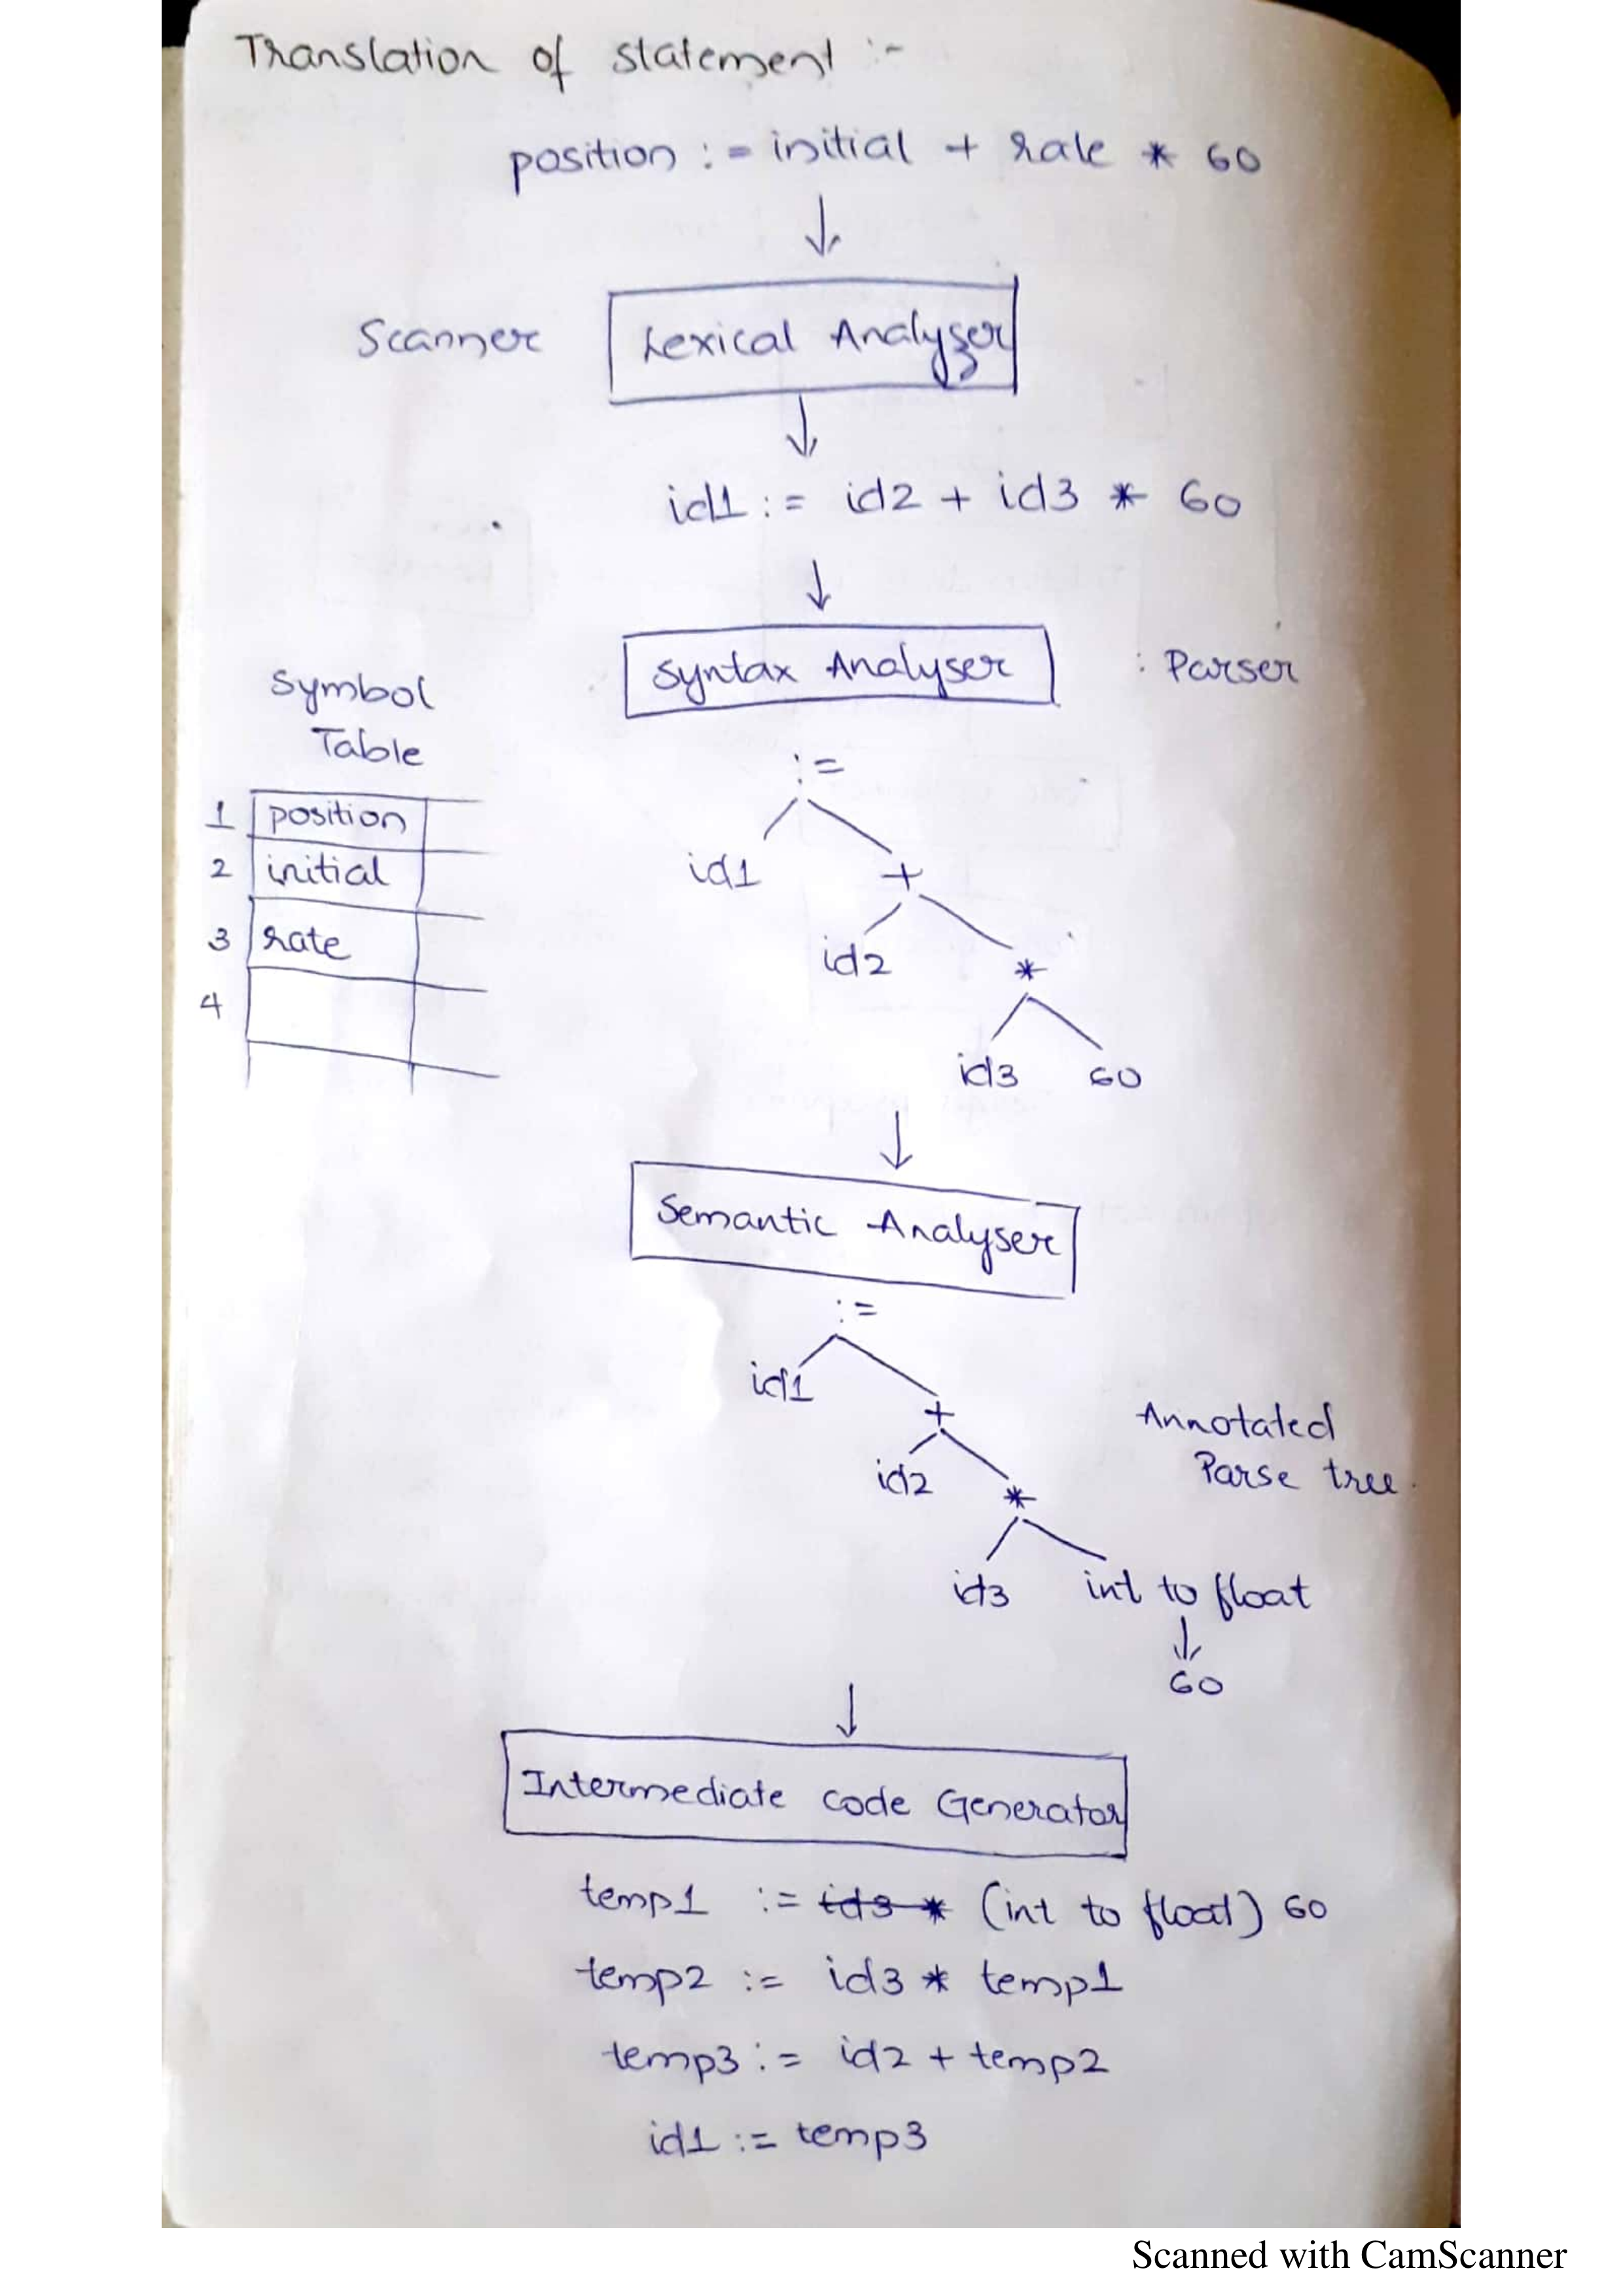 Translation of statement :-
position := initial + rate * 60
↓
Scanner Lexical Analyser
↓
id1 := id2 + id3 * 60
↓
Syntax Analyser : Parser
Symbol
Table
1 position
2 initial
3 rate
4
:=
id1 +
id2 *
id3 60
↓
Semantic Analyser
:=
id1 +
id2 *
Annotated
Parse tree.
id3 int to float
↓
60
↓
Intermediate code Generator
temp1 := id3 * (int to float) 60
temp2 := id3 * temp1
temp3 := id2 + temp2
id1 := temp3
Scanned with CamScanner